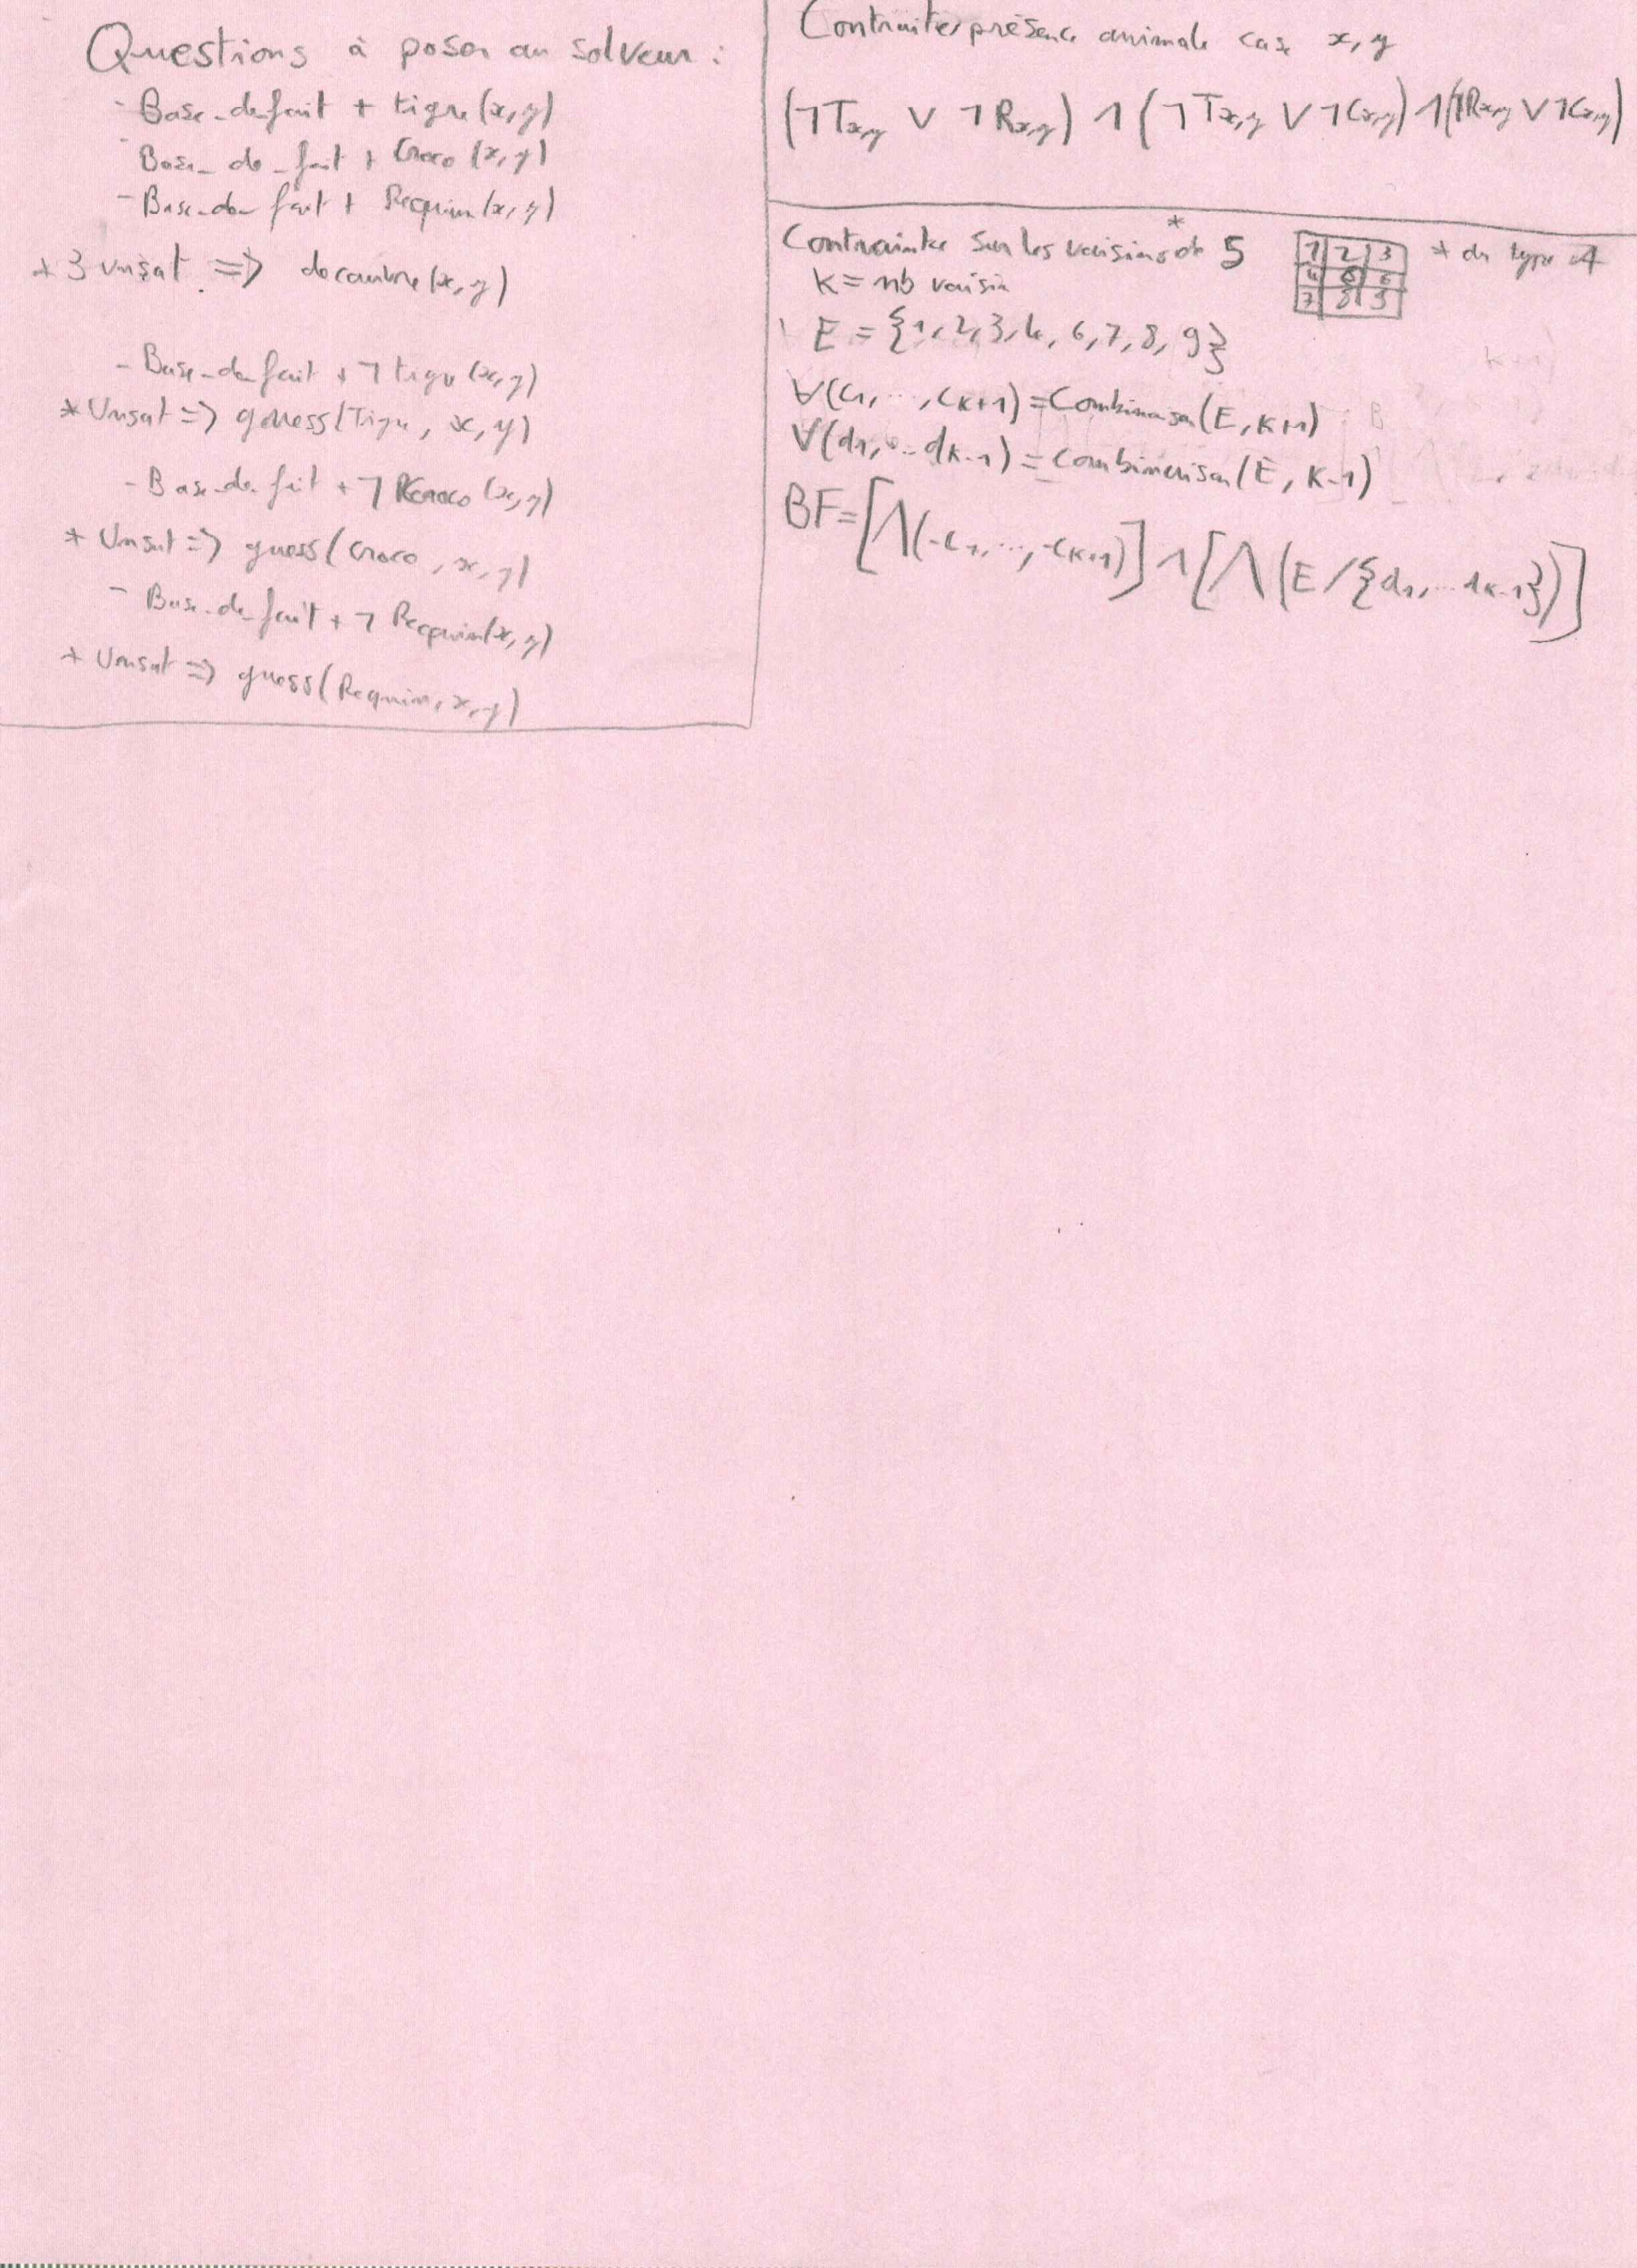 Questions à poser au solveur :
- Base_de_fait + tigre(x,y)
- Base_de_fait + Croco(x,y)
- Base_de_fait + Requin(x,y)
* 3 unsat => decouvre(x,y)
- Base_de_fait + ¬ tigre(x,y)
* Unsat => guess(Tigre, x, y)
- Base_de_fait + ¬ Croco(x,y)
* Unsat => guess(Croco, x, y)
- Base_de_fait + ¬ Requin(x,y)
* Unsat => guess(Requin, x, y)
Contraintes présence animale case x, y
(¬Tx,y ∨ ¬Rx,y) ∧ (¬Tx,y ∨ ¬Cx,y) ∧ (¬Rx,y ∨ ¬Cx,y)
Contrainte sur les voisins* de 5
1 2 3
4 5 6
7 8 9
* du type
K = nb voisin
E = {1, 2, 3, 4, 6, 7, 8, 9}
∀(c1, ..., cK+1) = Combinaison(E, K+1)
∀(d1, ... dK-1) = Combinaison(E, K-1)
BF = [∧(-c1, ..., -cK+1)] ∧ [∧(E/{d1, ... dK-1})]